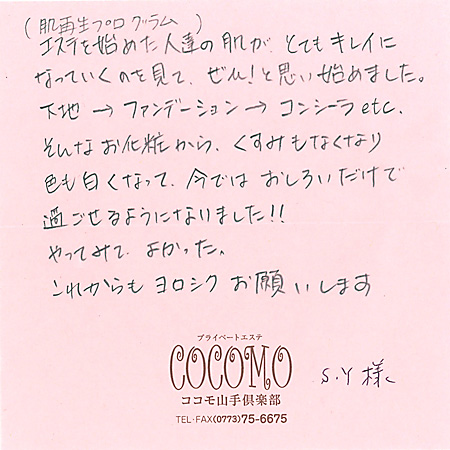 (肌再生プログラム)
エステを始めた人達の肌が、とてもキレイに
なっていくのを見て、ぜひ!と思い始めました。
下地→ファンデーション→コンシーラetc.
そんなお化粧から、くすみもなくなり
色も白くなって、今ではおしろいだけで
過ごせるようになりました!!
やってみて、よかった。
これからもヨロシクお願いします
プライベートエステ
COCOMO
ココモ山手倶楽部
S.Y様
TEL・FAX(0773)75-6675